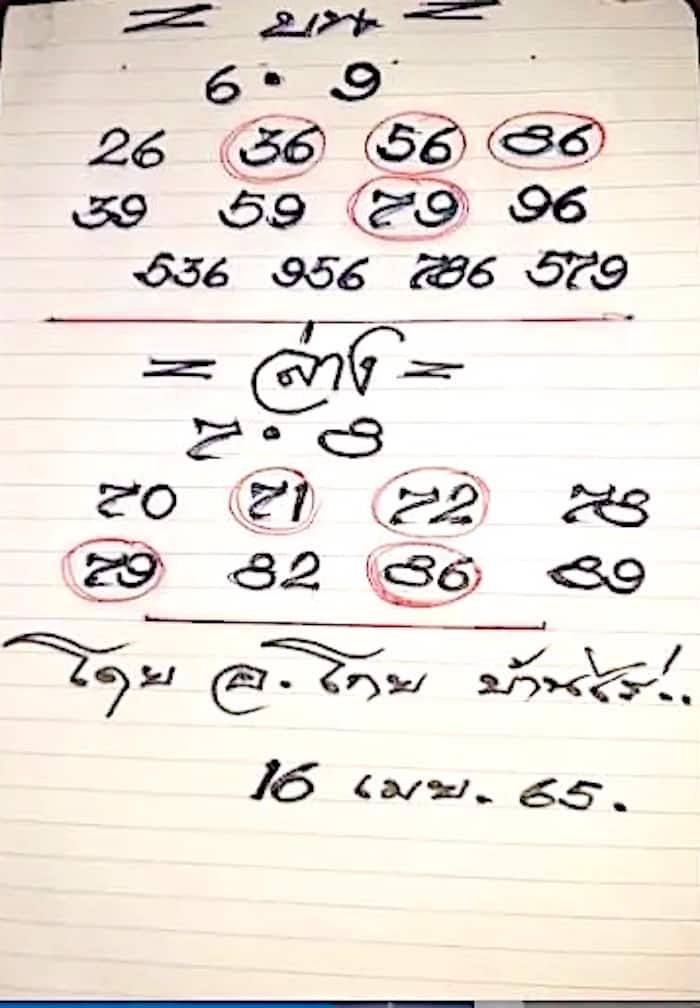 = บน =
6 • 9
26 36 56 86
39 59 79 96
536 956 786 579
= ล่าง =
7 • 8
70 71 72 78
79 82 86 89
โดย อ. โกย บ้านไร่..
16 เมย. 65.